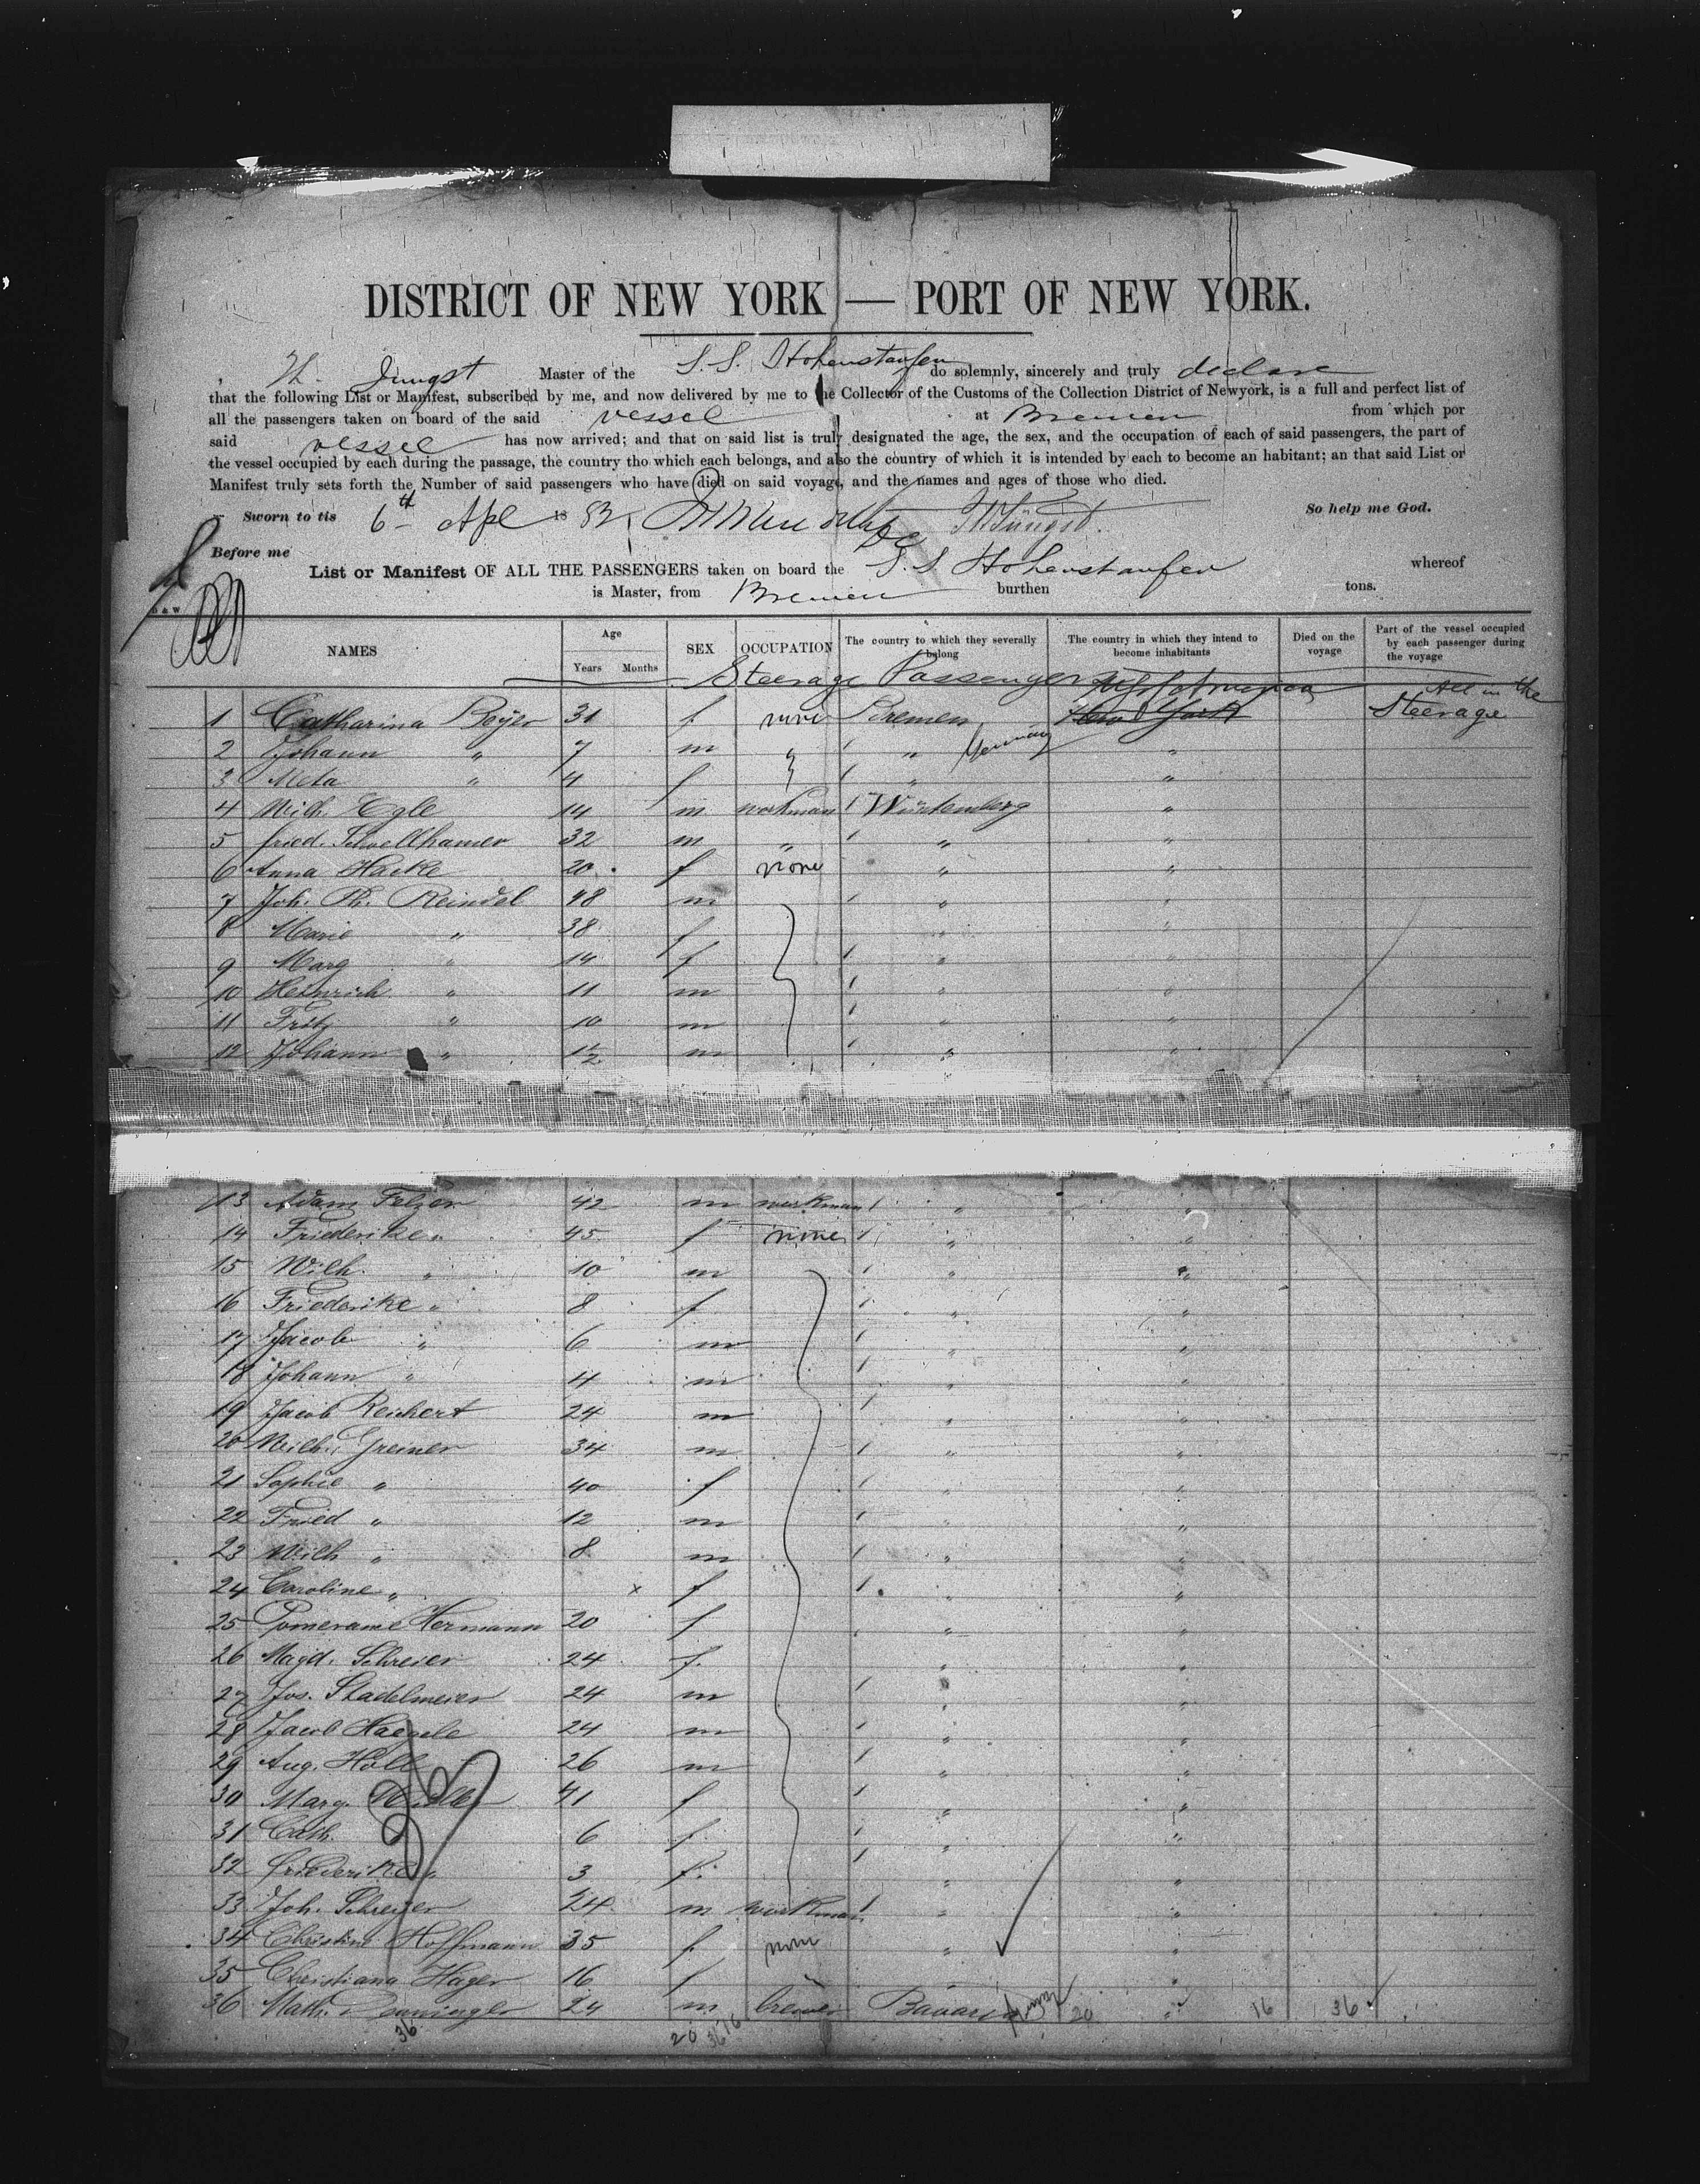 DISTRICT OF NEW YORK — PORT OF NEW YORK.
Th. Jüngst Master of the S.S. Hohenstaufen do solemnly, sincerely and truly declare
that the following List or Manifest, subscribed by me, and now delivered by me to the Collector of the Customs of the Collection District of Newyork, is a full and perfect list of
all the passengers taken on board of the said vessel at Bremen from which por
said vessel has now arrived; and that on said list is truly designated the age, the sex, and the occupation of each of said passengers, the part of
the vessel occupied by each during the passage, the country tho which each belongs, and also the country of which it is intended by each to become an habitant; an that said List or
Manifest truly sets forth the Number of said passengers who have died on said voyage, and the names and ages of those who died.
Sworn to tis 6th Apl 18 So help me God.
Th Jüngst.
Before me
List or Manifest OF ALL THE PASSENGERS taken on board the S.S. Hohenstaufen whereof
is Master, from Bremen burthen tons.
NAMES Age Years Months SEX OCCUPATION The country to which they severally belong The country in which they intend to become inhabitants Died on the voyage Part of the vessel occupied by each passenger during the voyage
Steerage Passengers
1 Catharina Beyer 31 f none Bremen New York All in the Steerage
2 Johann " 7 m " " Germany "
3 Meta " 4 f " "
4 Wilh. Egle 14 m workman Würtemberg "
5 fried. Schvellhamer 32 m " " "
6 Anna Hacke 20 f none " "
7 Joh. Ph. Reindel 48 m " "
8 Marie " 38 f " "
9 Marg " 14 f " "
10 Heinrich " 11 m " "
11 Fritz " 10 m " "
12 Johann " 1½ m " "
13 Adam Felzer 42 m workman " "
14 Friederike " 45 f none " "
15 Wilh. " 10 m " "
16 Friederike " 8 f " "
17 Jacob " 6 m " "
18 Johann " 4 m " "
19 Jacob Reichert 24 m " "
20 Wilh. Greiner 34 m " "
21 Sophie " 40 f " "
22 Fried " 12 m " "
23 Wilh " 8 m " "
24 Caroline " x f " "
25 Hermann 20 f " "
26 Magd. Schreier 24 f. " "
27 Jos. Stadelmeier 24 m " "
28 Jacob Haegele 24 m " "
29 Aug. Holl 26 m " "
30 Marg. 41 f " "
31 Cath. 6 f " "
32 friederike " 3 f. " "
33 Joh. Schreyer 24 m workman " "
34 Christine Hoffmann 35 f none " "
35 Christiana Häger 16 f "
36 Math. Denninger 24 m brewer Bavaria 20 " 16 36
36 20 36 16